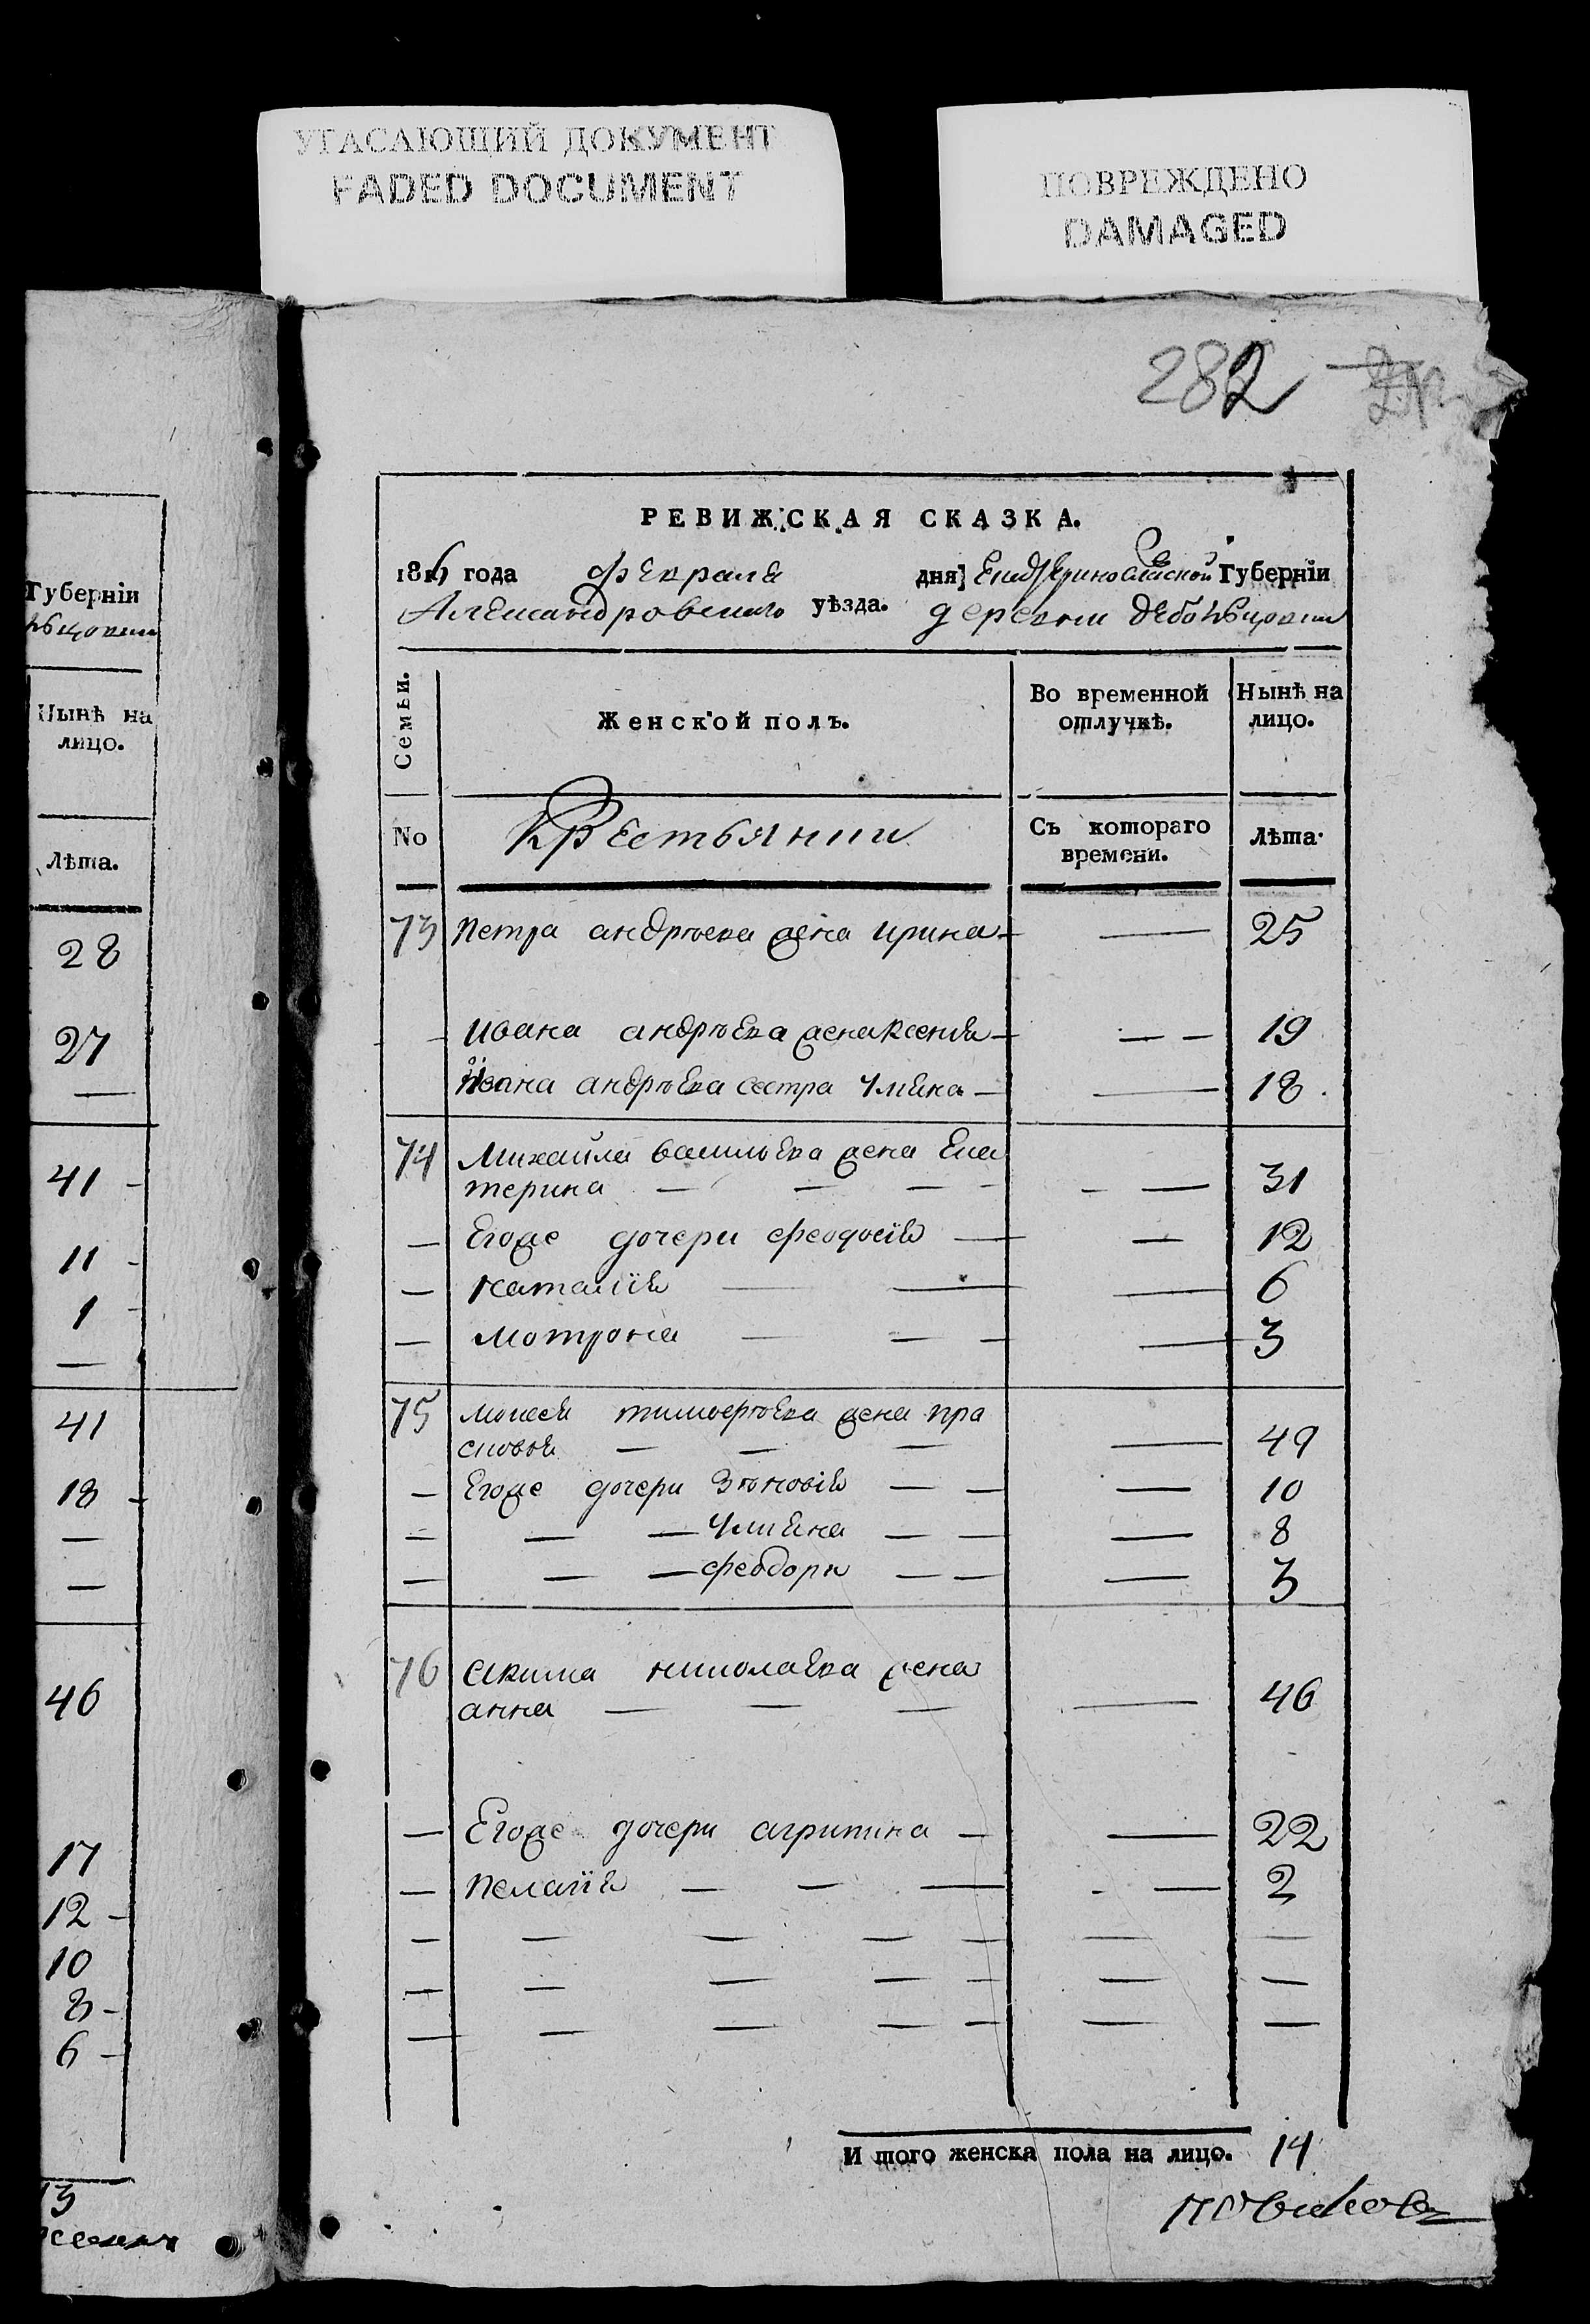 УГАСАЮЩИЙ ДОКУМЕНТ
FADED DOCUMENT
ПОВРЕЖДЕНО
DAMAGED
282
РЕВИЖСКАЯ СКАЗКА.
1816 года Февраля дня Екатеринославской Губерніи
Александровскаго уѣзда. деревни
Семьи. Женской полъ. Во временной отлучкѣ. Нынѣ на лицо.
No Крестьянки Съ котораго времени. Лѣта.
73 Петра андрѣева жена ирина — — 25
— ивана андрѣева жена Ксенія — — — 19
ивана андрѣева сестра Улияна — — 18
74 Михайла васильева жена Ека
терина — — — — — — 31
— Егоже дочери феодосія — — 12
— наталія — — — 6
— мотрона — — — — 3
75 моисея тимофѣева жена пра
сковья — — — — 49
— Егоже дочери Зѣновія — — — 10
— — — Улияна — — — 8
— — — феодора — — — 3
76 Екима николаева жена
анна — — — — 46
— Егоже дочери агрипина — — 22
— пелагія — — — — — 2
— — — — — — —
— — — — — — —
— — — — — — —
И того женска пола на лицо. 14
Новиковъ
Губерніи
Нынѣ на
лицо.
Лѣта.
28
27
—
41 –
11 –
1 –
—
41
18 –
—
—
46
17
12 –
10
8 –
6 –
13